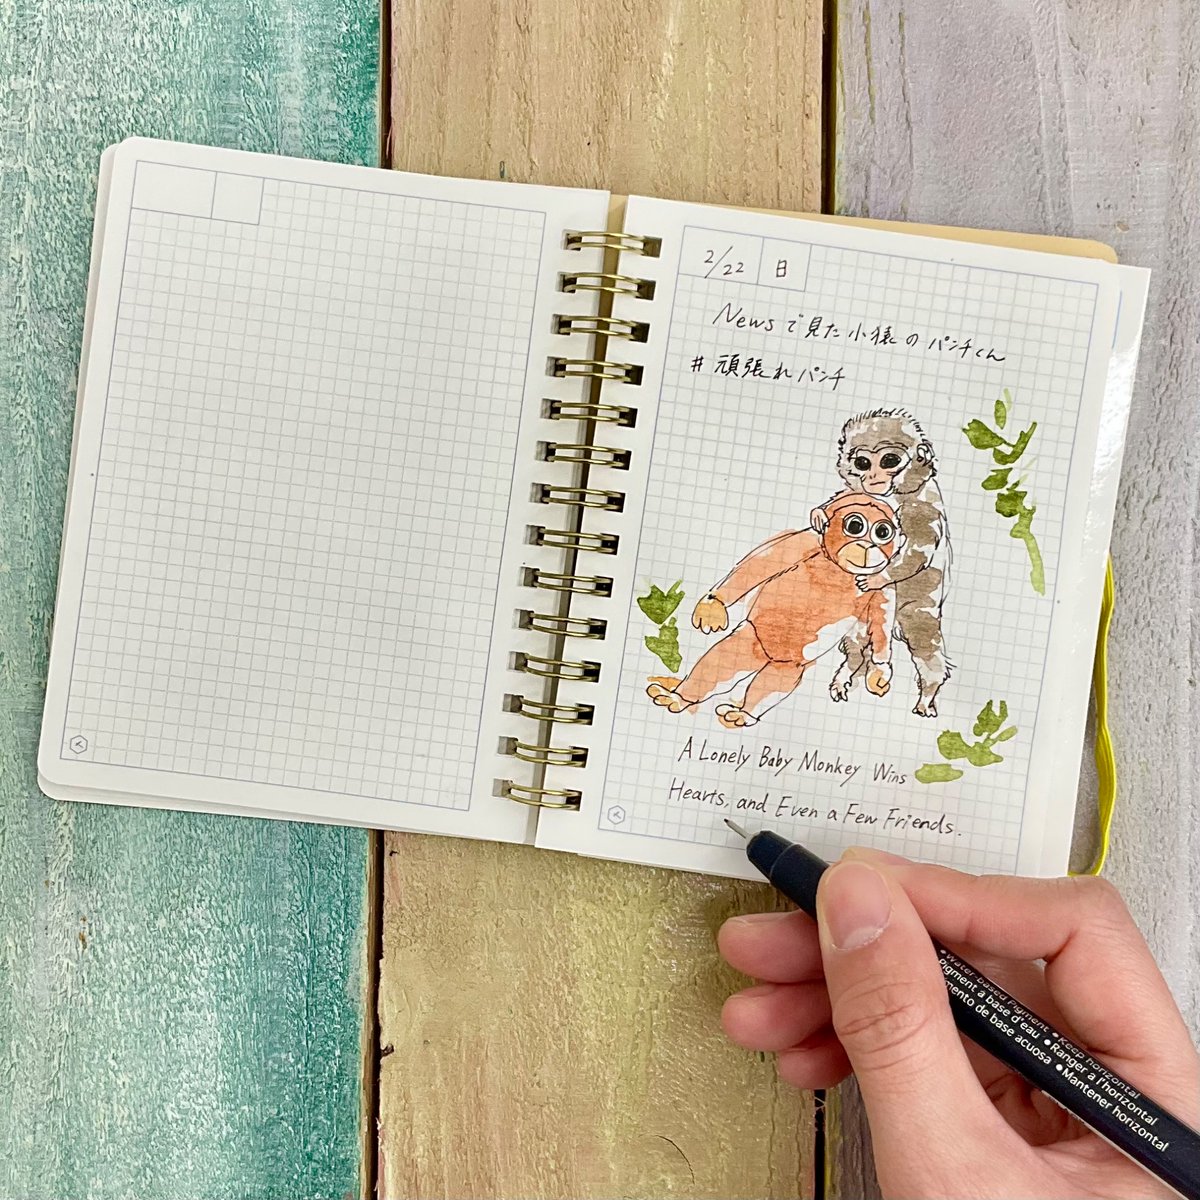 2/22 日
Newsで見た小猿のパンチくん
#頑張れパンチ
A Lonely Baby Monkey Wins
Hearts, and Even a Few Friends.
•Water-based Pigment •Keep horizontal
Pigment à base d'eau •Ranger a l'horizontal
mento de base acuosa •Mantener horizontal